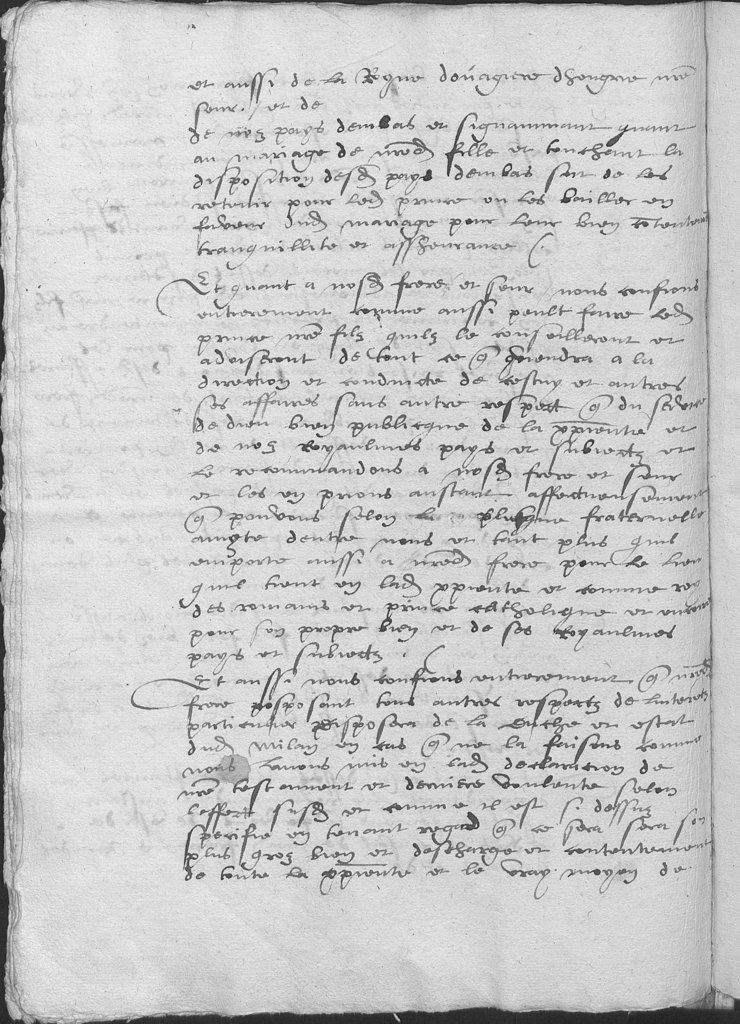 et aussi de la Royne douagiere dhongrie nre
seur. et de
de noz pays dembas et signamment quant
au mariage de nred fille et touchant la
disposition desd pays dembas soit de les
retenir pour led prince ou les bailler en
faveur dud mariage pour leur bien contentem
tranquillite et assheurance /.
Et quant a nosd frere et seur nous confions
entierement comme aussi peult faire led
prince nre filz quilz le conseilleront et
adviseront de tout ce q conviendra a la
direction et conduicte de cestuy et autres
ses affaires sans autre respect q du service
de dieu bien publicque de la xpiente et
de noz Royaulmes pays et subiectz et
le recommandons a nosd frere et seur
et les en prions autant affectueusement
q pouvons selon la fraternelle
amyte dentre nous et tant plus quil
emporte aussi a nred frere pour le lieu
quil tient en lad xpiente et comme roy
des romains et prince catholique et encores
pour son propre bien et de ses Royaulmes
pays et subiectz . /
Et aussi nous confions entierement q nred
frere posposant tous autres respectz de interetz
particulier disposera de la duche et estat
dud milan en cas q ne la faisons comme
nous lavons mis en lad declaracion de
nre testament et derniere voulente selon
leffect susd et comme il est si dessus
specifie en tenant regard q ce sera sera son
plus groz bien et descharge et contentement
de toute la xpiente et le vray moyen de